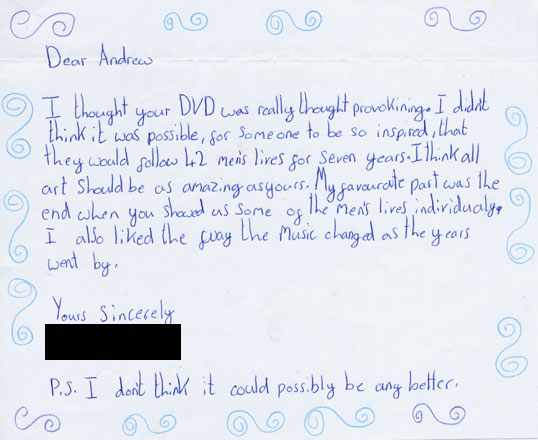 Dear Andrew
I thought your DVD was really thought provokining. I didn't
think it was possible, for someone to be so inspired, that
they would follow 42 men's lives for seven years. I think all
art should be as amazing as yours. My favourate part was the
end when you showed us some of the men's lives individualy.
I also liked the way the music changed as the years
went by.
Yours sincerely
P.S. I don't think it could possibly be any better.